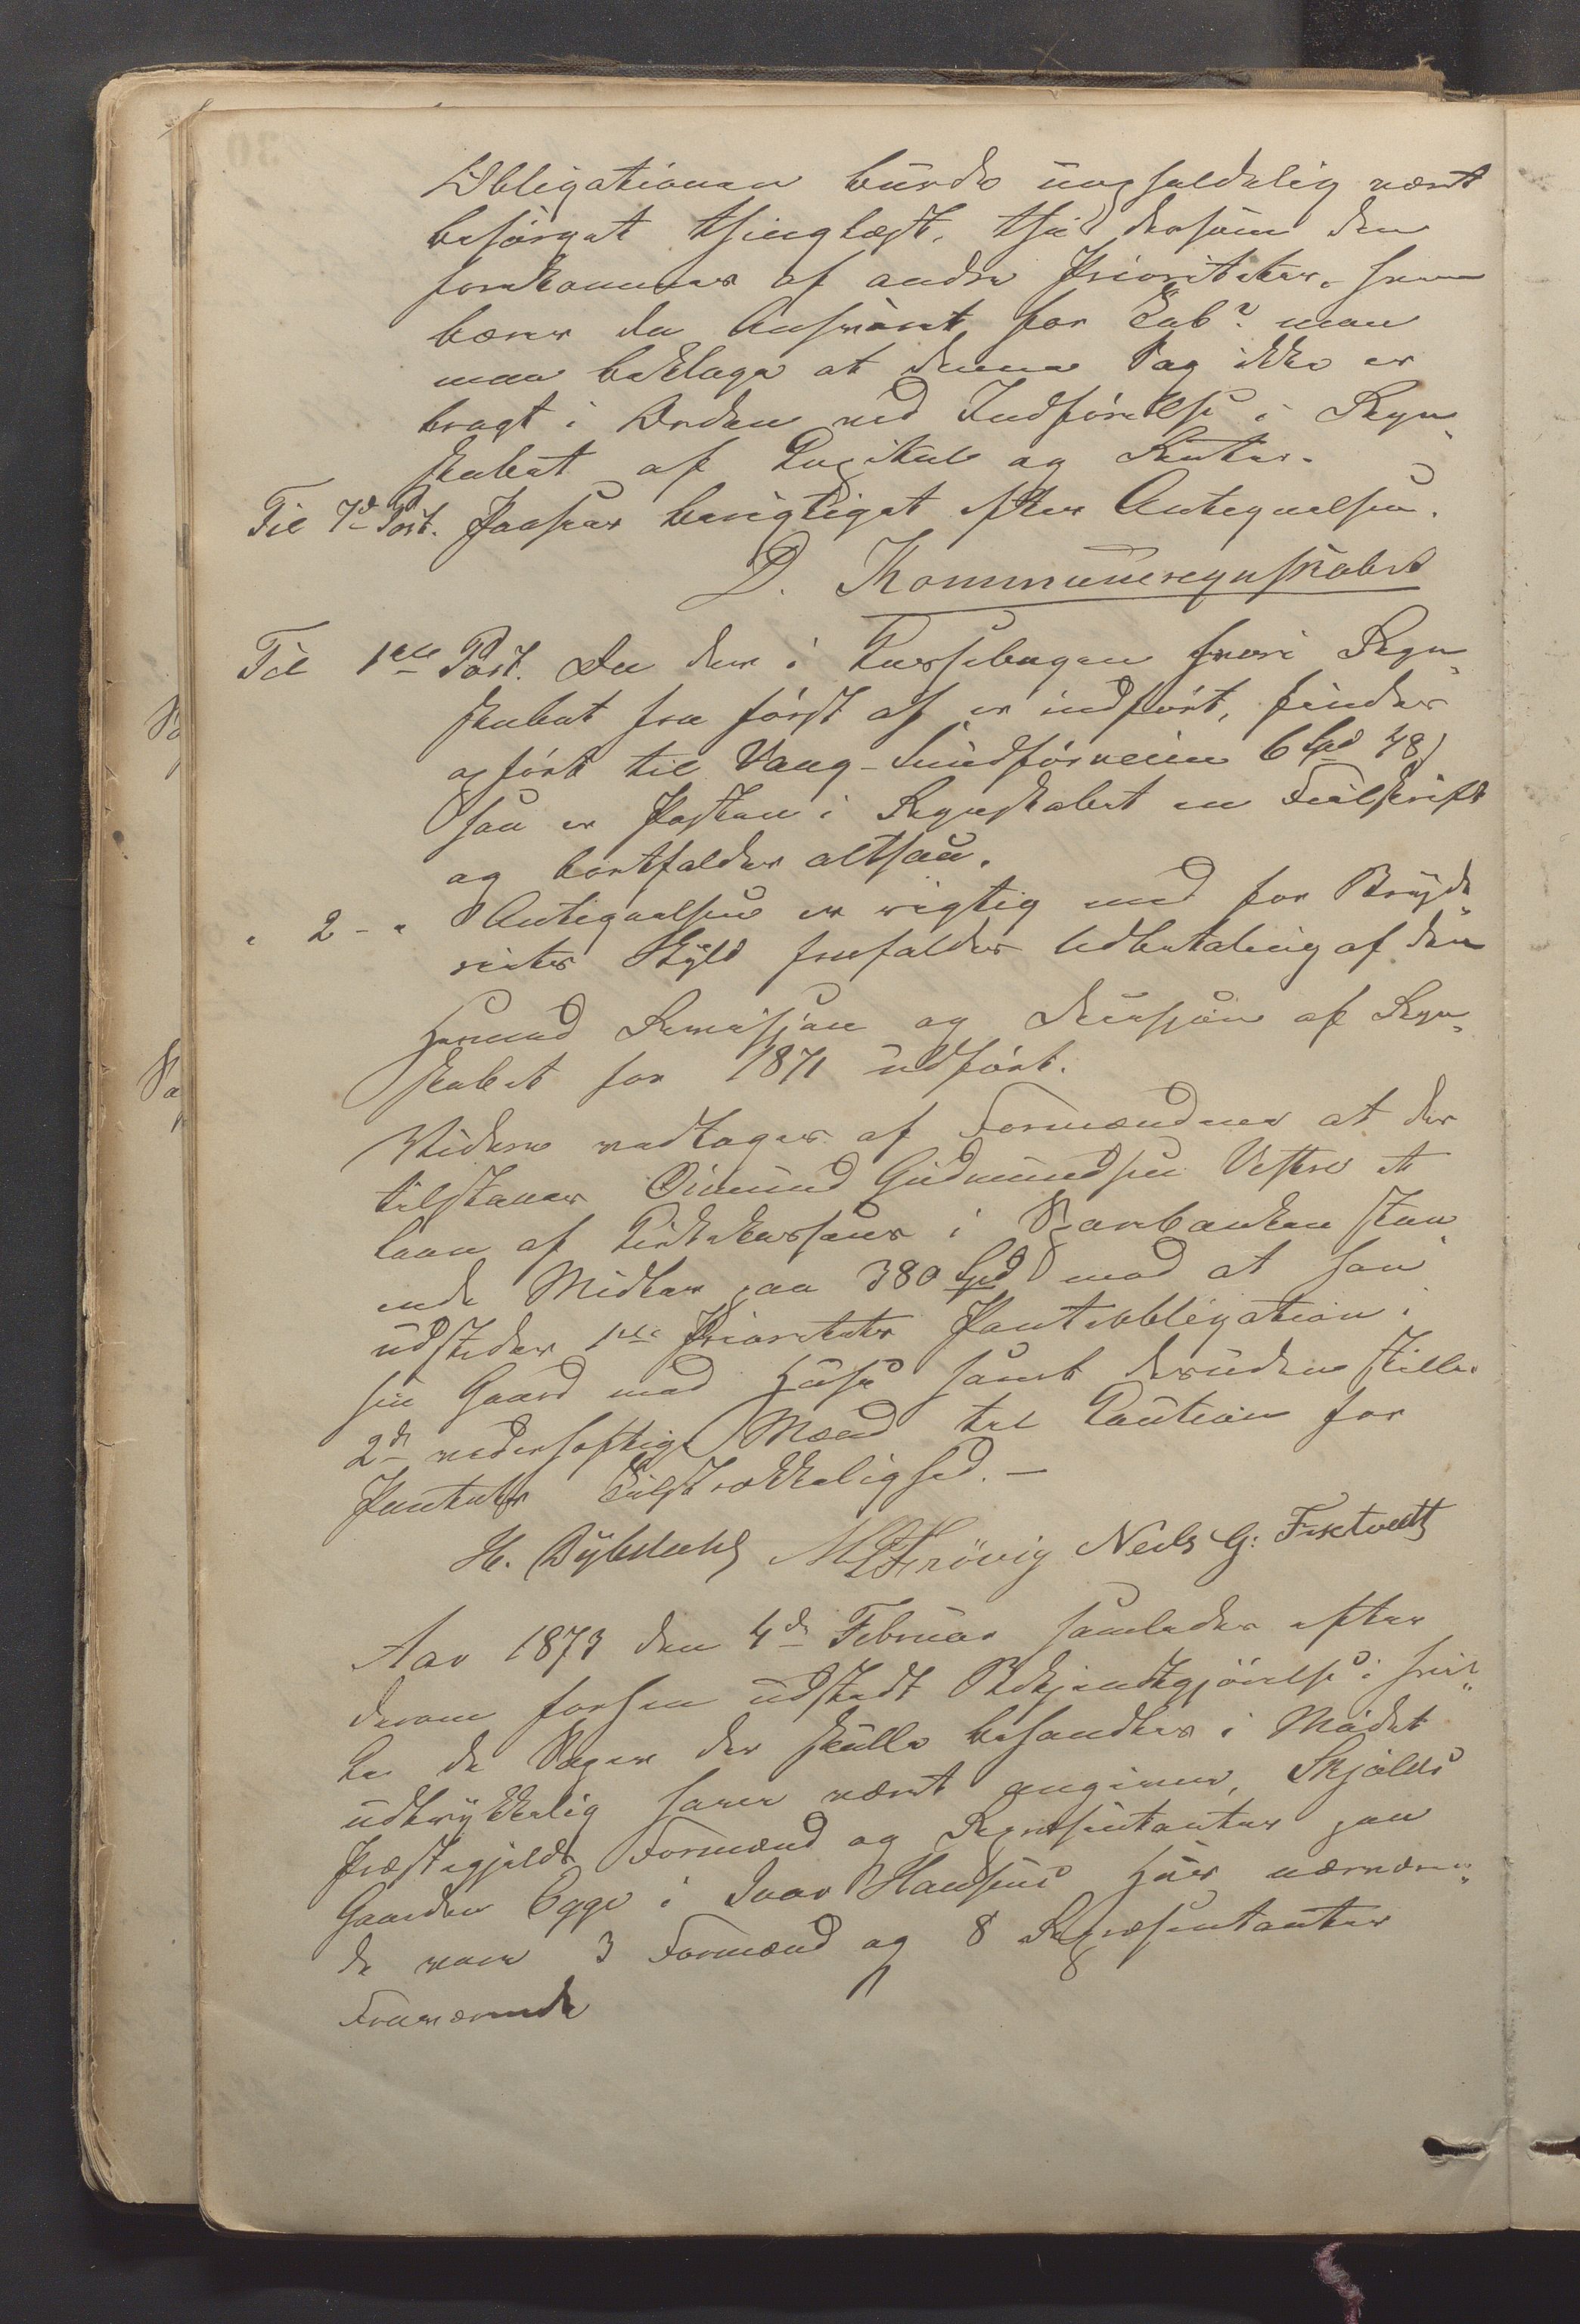 Obligationen burde uopholdelig vært
besørget thinglæst, thi dersom den
forekommes af andre Prioriteter, hvem
bærer da Ansvaret for Tab? man
maa beklage at denne Sag ikke er
bragt i Orden ved Indførelse i Regn„
skabet af Kapital og Renter.
Til 7de Post. Passer berigtiget efter Antegnelsen.
D. Kommuneregnskabet
Til 1ste Post. Da der i Kassebogen hvori Regn„
skabet fra først af er indført, findes
opført til Vang-Sundførveien 6 Spd 48 s
saa er Posten i Regnskabet en Feilskrift
og bortfalder altsaa.
" 2 - " Antegnelsen er rigtig med for
Skyld frafaldes Udbetaling af den
Hermed Revisjon og Decisjon af Regn„
skabet for 1871 udført.
Videre vedtages af Formændene at der
tilstaaes Gudmundsen Vettere et
Laan af Kirkekassens i Sparbanken staa„
ende Midler paa 380 Spd mod at han
udsteder 1ste Prioritets Pantobligation i
sin Gaard med Huse samt desuden stille
2de vederhæftige Mænd til Caution for
Pantets Tilstrækkelighed. —
H. Dybdahl M Frøvig Neils G: Fixetvedt
Aar 1873 den 4de Februar samledes efter
derom forhen udstedt Bekjendtgjørelse i hvil„
ke de Sager der skulle behandles i Mødet
udtrykkelig have vært angivne, Skjolds
Præstegjelds Formænd og Repræsentanter paa
Gaarden Egge i Ivar Hansens Hus nærværen„
de vare 3 Formænd og 8 Repræsentanter
Fraværende